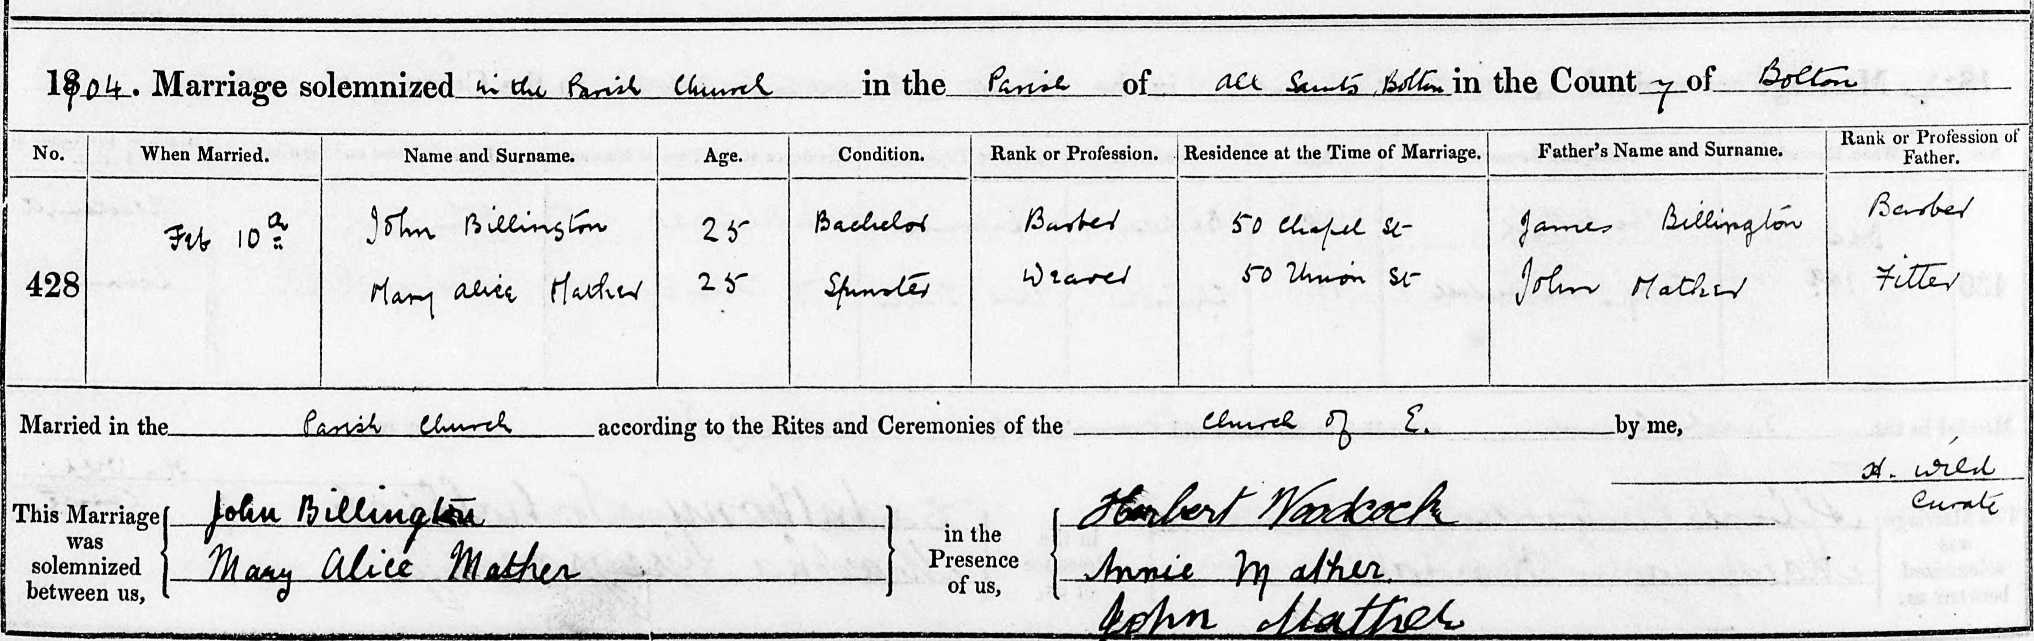 1904. Marriage solemnized in the Parish Church in the Parish of All Saints Bolton in the County of Bolton
No. When Married. Name and Surname. Age. Condition. Rank or Profession. Residence at the Time of Marriage. Father's Name and Surname. Rank or Profession of Father.
Feb 10th John Billington 25 Bachelor Barber 50 Chapel St James Billington Barber
428 Mary Alice Mather 25 Spinster Weaver 50 Union St John Mather Fitter
Married in the Parish Church according to the Rites and Ceremonies of the Church of E. by me,
H. Wild
Curate
This Marriage was solemnized between us,
John Billington
Mary Alice Mather
in the Presence of us,
Herbert Woodcock
Annie Mather.
John Mather